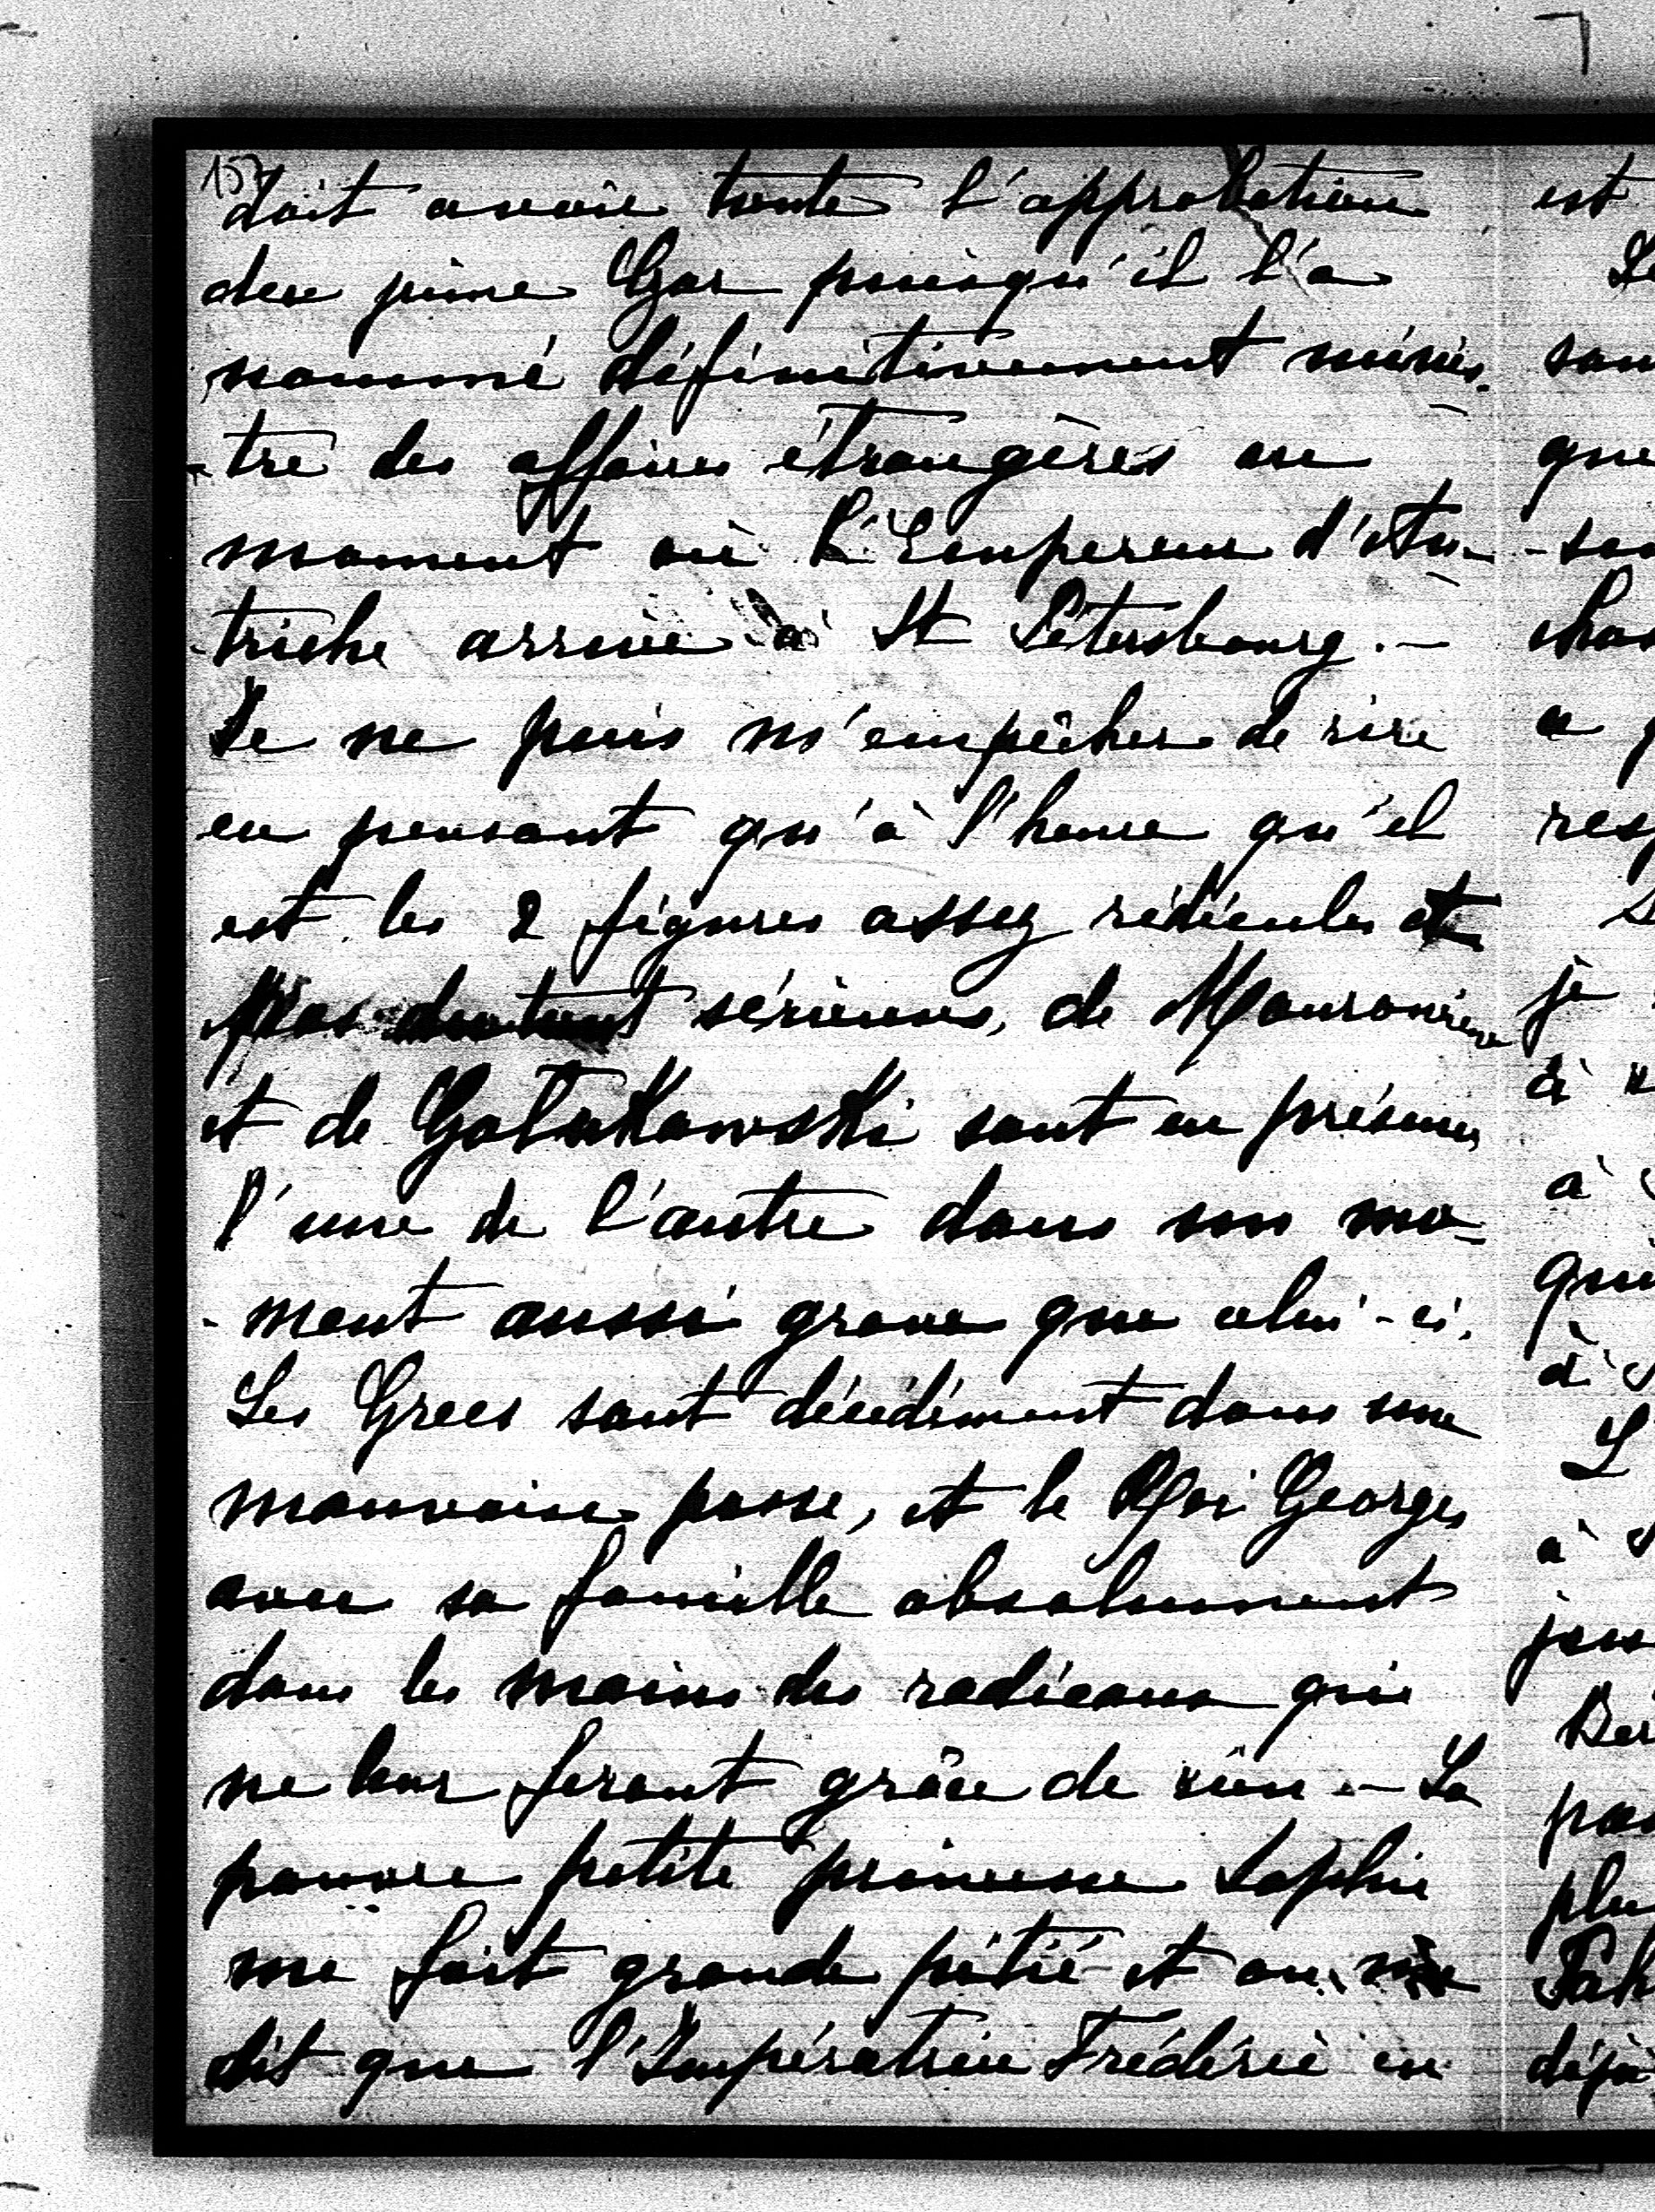 157
doit avoir toute l'approbation
du jeune Czar puisqu'il l'a
nommé définitivement minis-
-tre des affaires étrangères au
moment où l'Empereur d'Au-
-triche arrive à St Pétersbourg. —
Je ne puis m'empêcher de rire
en pensant qu'à l'heure qu'il
est les 2 figures assez ridicules et
pas du tout sérieuses, de Mouravieew
et de Golukowski sont en présence
l'une de l'autre dans un mo-
-ment aussi grave que celui-ci.
Les Grecs sont décidément dans une
mauvaise passe, et le Roi Georges
avec sa famille absolument
dans les mains des radicaux qui
ne leur feront grâce de rien. — La
pauvre petite princesse Sophie
me fait grande pitié et on me
dit que l'Impératrice Frédéric en
est
Le
que
à
à
qui
à
L'
à
déjà